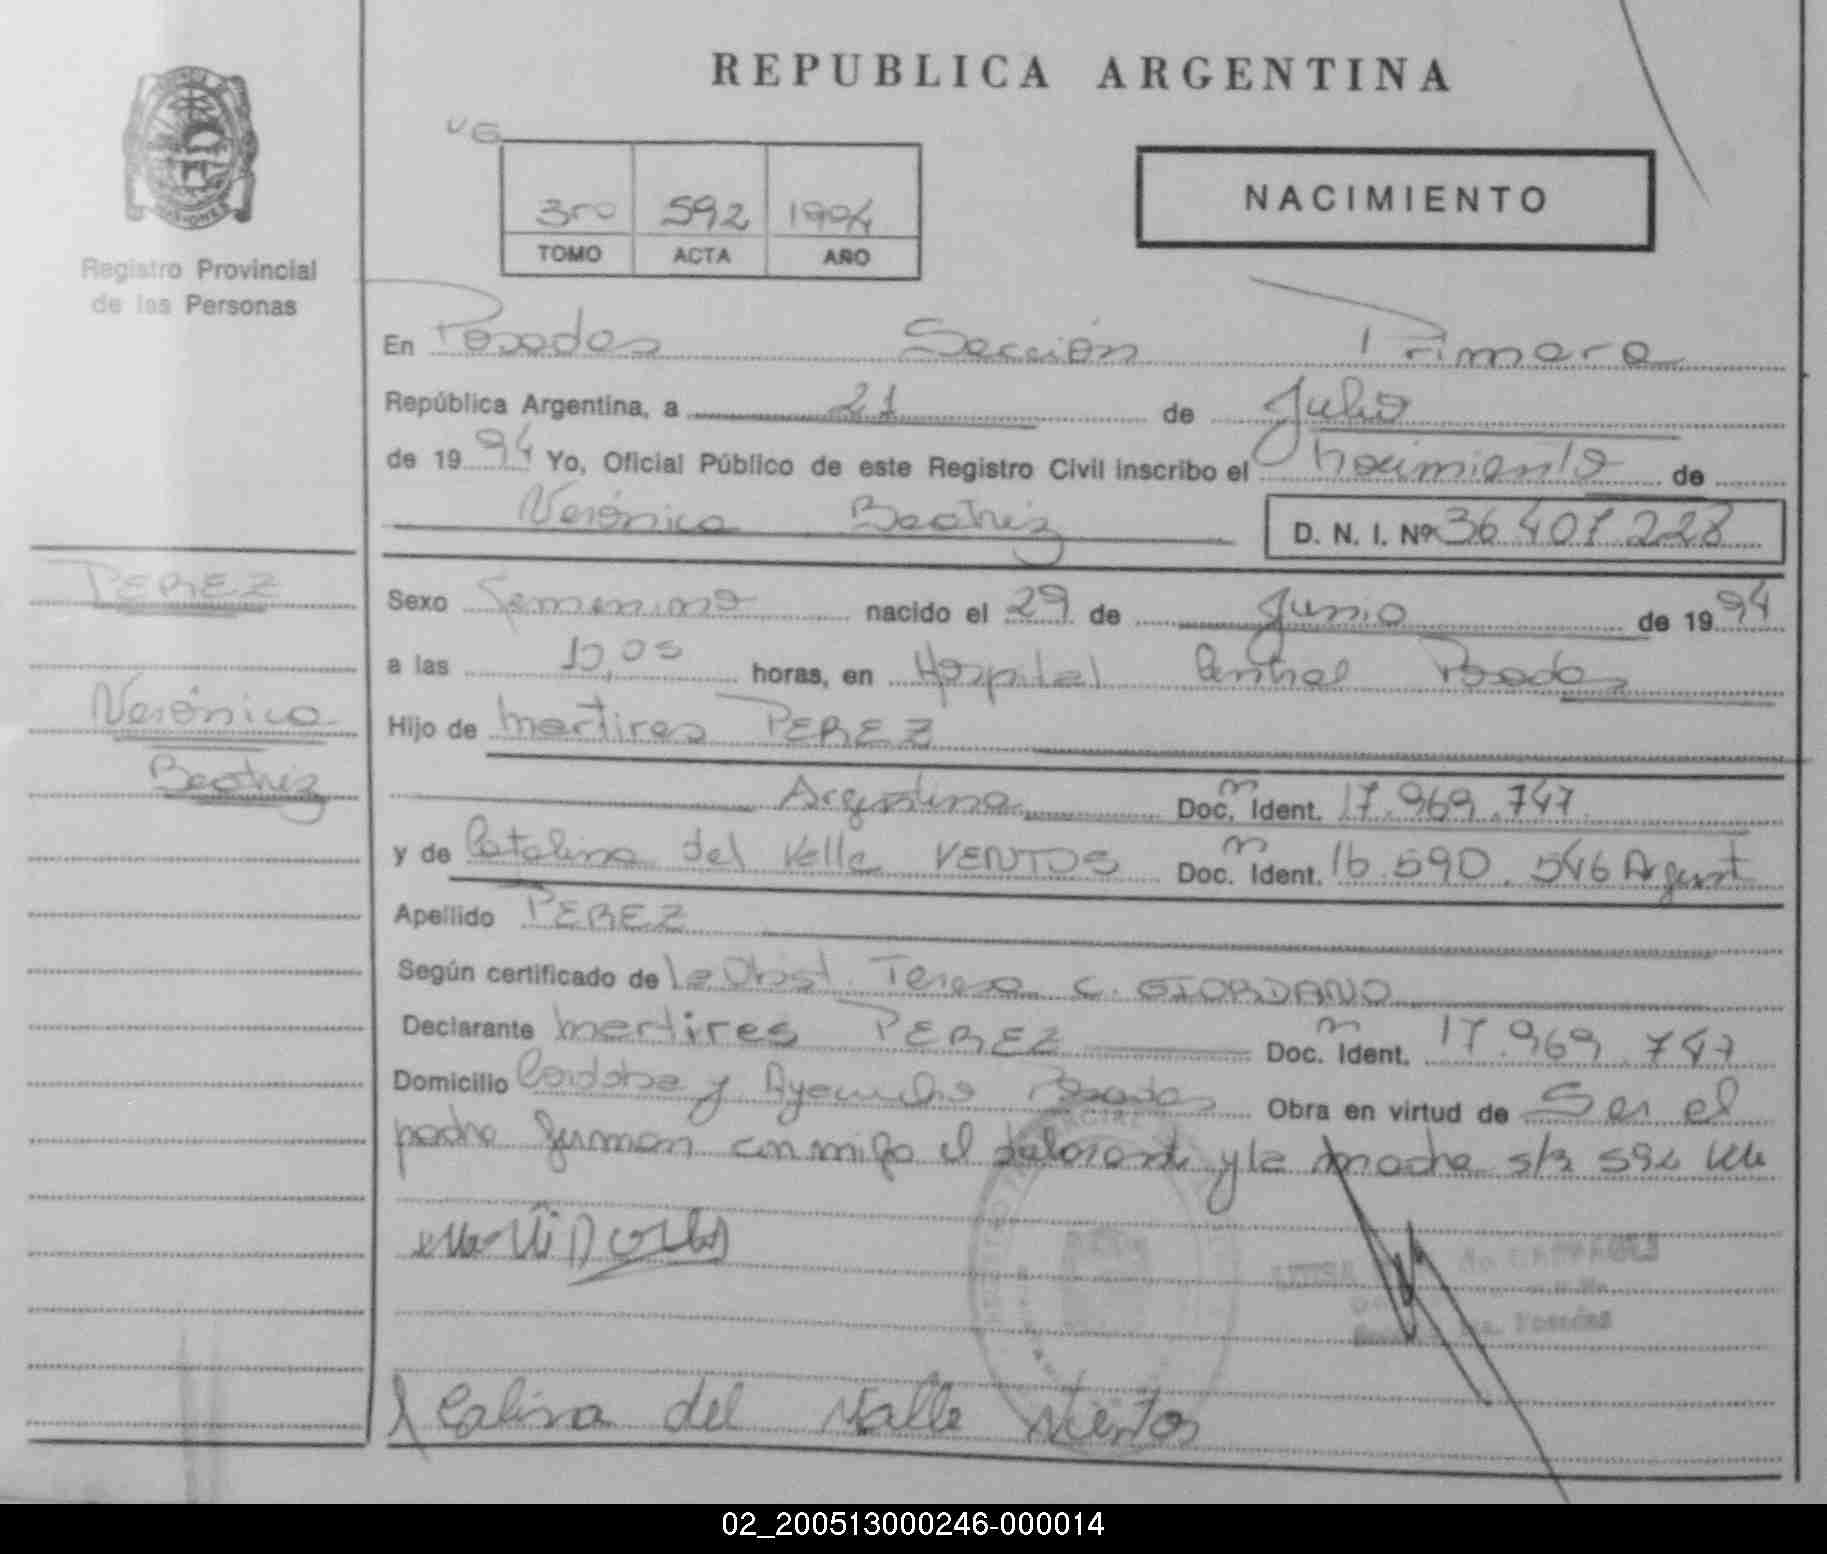 REPUBLICA ARGENTINA
MISIONES
Registro Provincial
de las Personas
3ro 592 1994
TOMO ACTA AÑO
NACIMIENTO
En Posadas Sección Primera
República Argentina, a 21 de Julio
de 1994 Yo, Oficial Público de este Registro Civil inscribo el nacimiento de
Verónica Beatriz D. N. I. Nº 36.407.228
PEREZ
Verónica
Beatriz
Sexo Femenino nacido el 29 de Junio de 1994
a las horas, en Hospital Central Posadas
Hijo de Martires PEREZ
Argentina Doc. m Ident. 17.969.747
y de Catalina del Valle VENTOS Doc. m Ident. 16.590.546 Argent
Apellido PEREZ
Según certificado de la Obst. Teresa C. GIORDANO
Declarante Martires PEREZ Doc. m Ident. 17.969.747
Domicilio Cordoba y Ayacucho Posadas Obra en virtud de Ser el
padre firman conmigo el y la madre 592
Calina del Valle Vientos
02_200513000246-000014